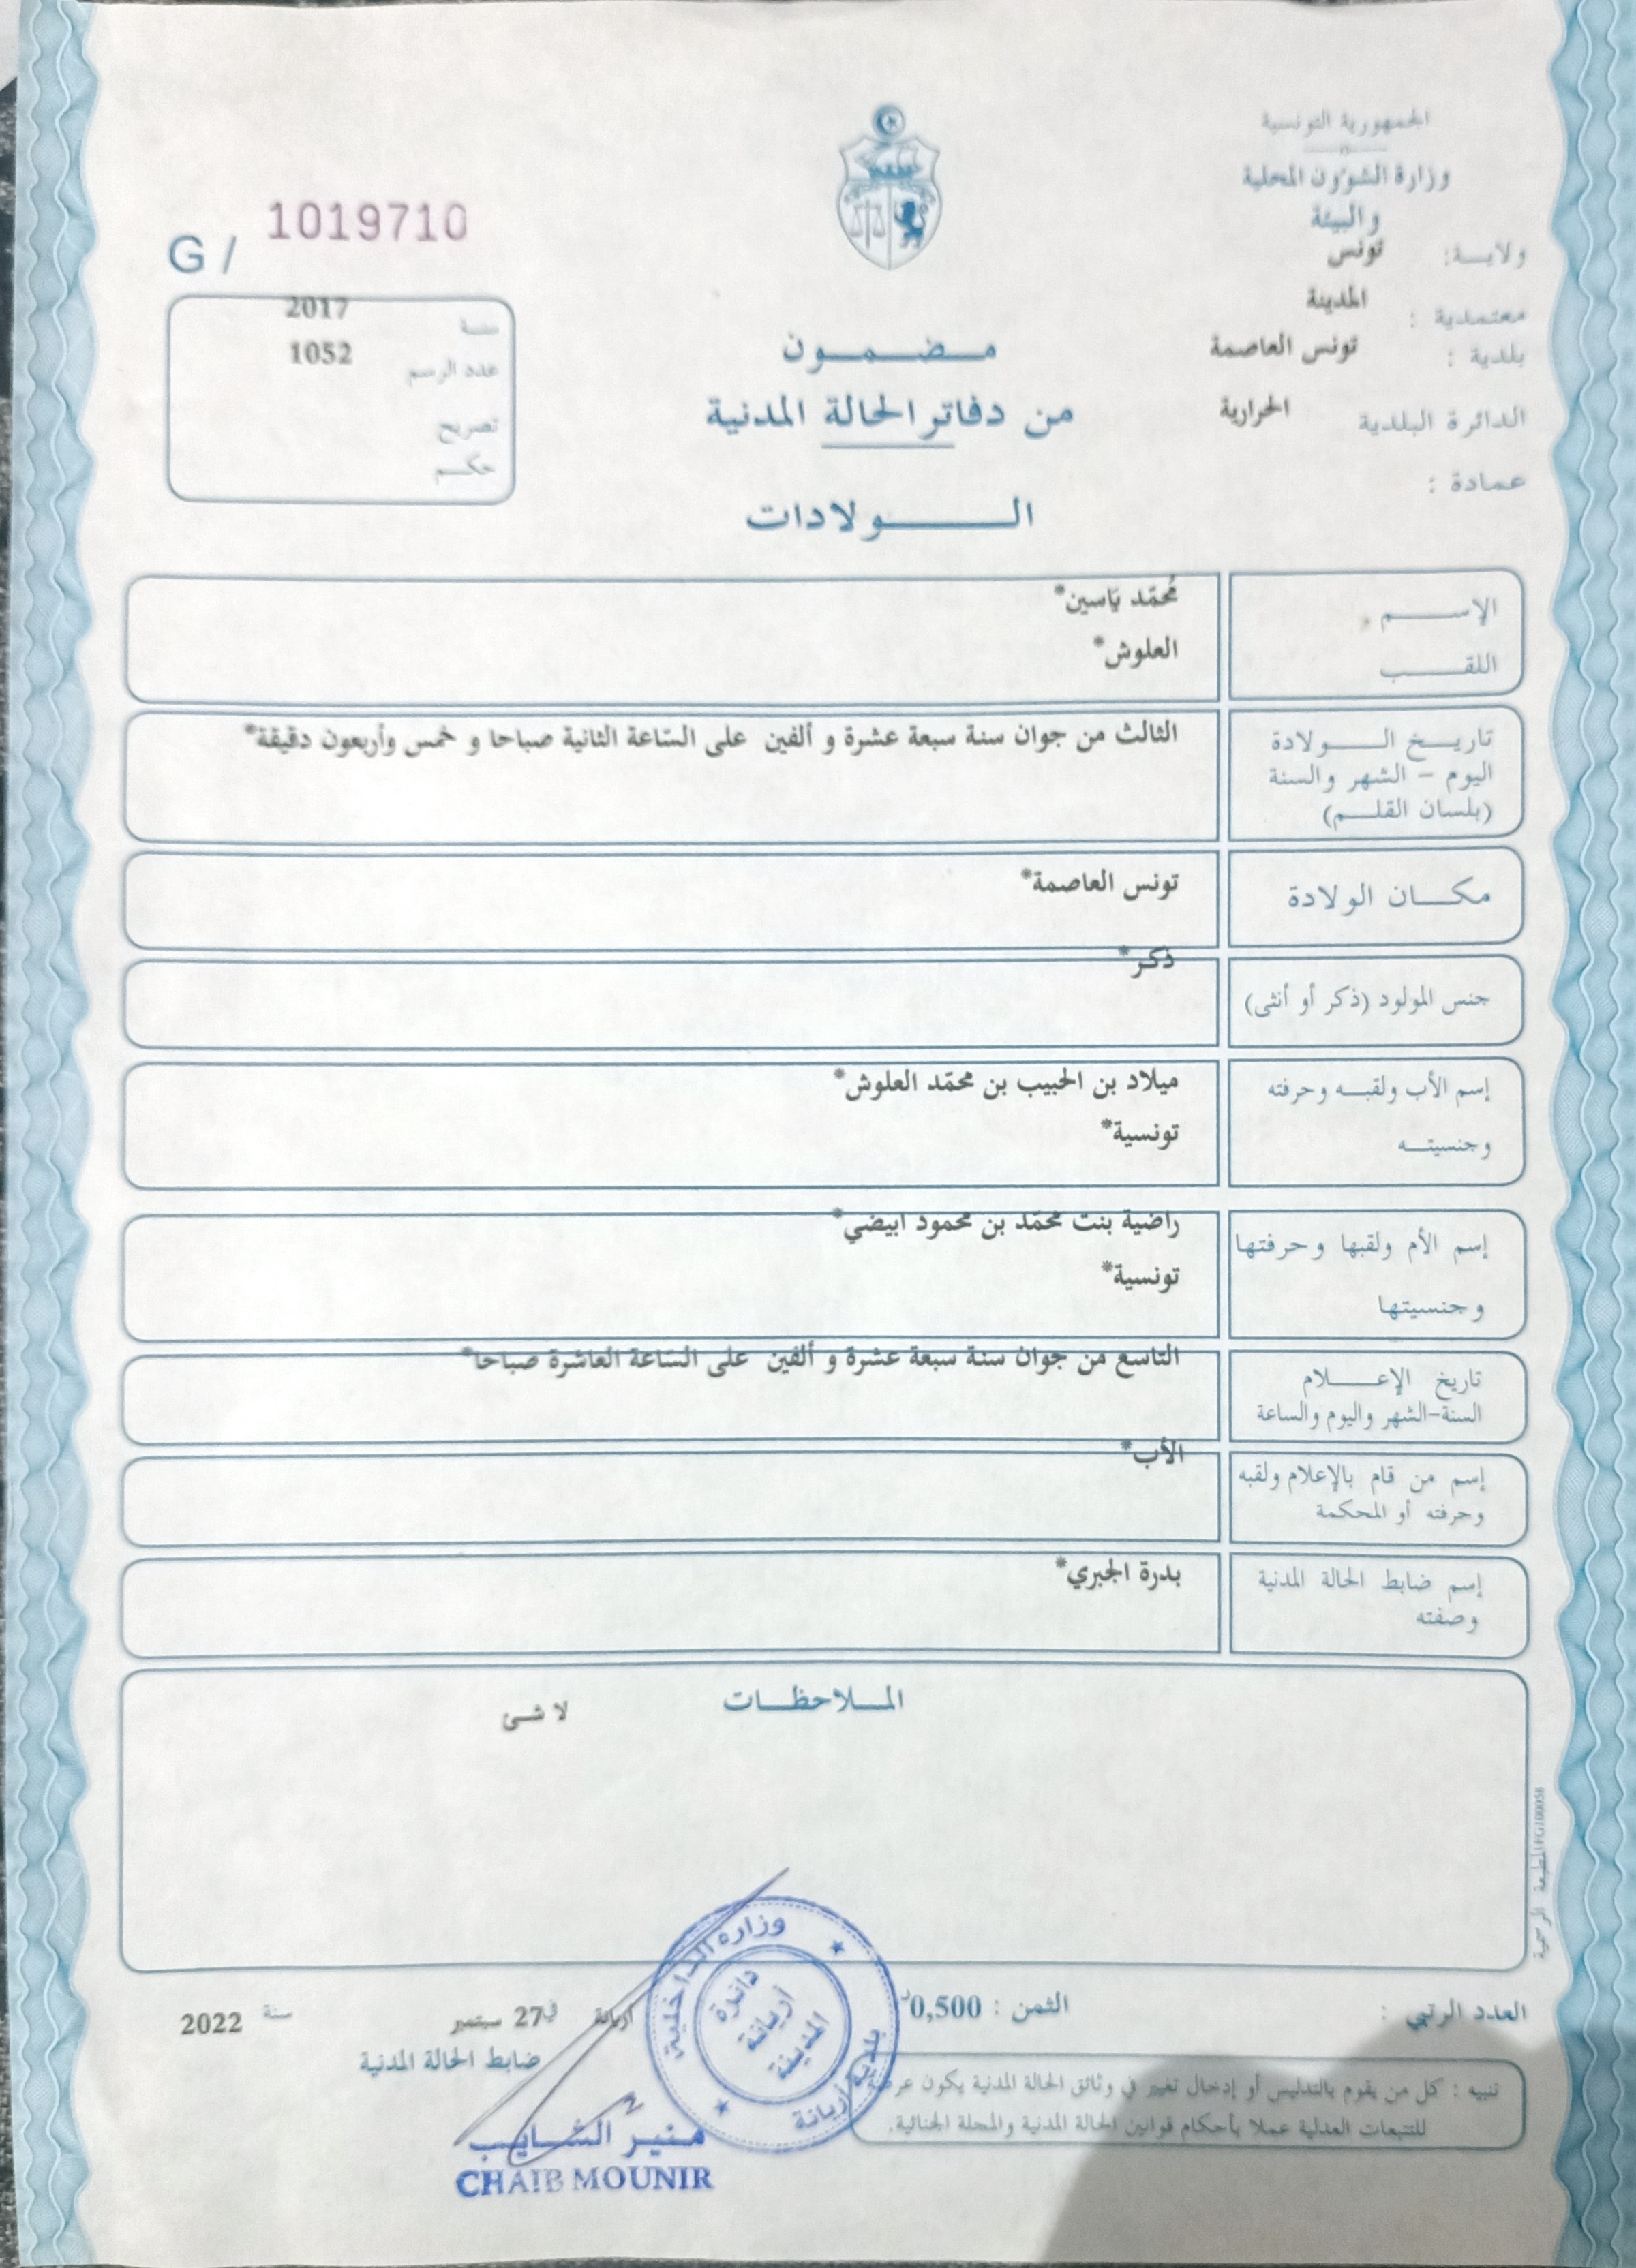 الجمهورية التونسية
وزارة الشؤون المحلية
والبيئة
ولايـة: تونس
معتمدية : المدينة
بلدية : تونس العاصمة
الدائرة البلدية الحرارية
عمادة :
G / 1019710
سنة 2017
عدد الرسم 1052
تصريح
حكم
مضمون
من دفاتر الحالة المدنية
الولادات
الإسم مُحمّد يَاسين*
اللقب العلوش*
تاريخ الولادة
اليوم - الشهر والسنة
(بلسان القلم)
الثالث من جوان سنة سبعة عشرة و ألفين على السّاعة الثانية صباحا و خمس وأربعون دقيقة*
مكان الولادة تونس العاصمة*
جنس المولود (ذكر أو أنثى) ذكر*
إسم الأب ولقبه وحرفته ميلاد بن الحبيب بن محمّد العلوش*
وجنسيته تونسية*
إسم الأم ولقبها وحرفتها راضية بنت محمّد بن محمود ابيضي*
وجنسيتها تونسية*
تاريخ الإعلام
السنة-الشهر واليوم والساعة
التاسع من جوان سنة سبعة عشرة و ألفين على السّاعة العاشرة صباحا*
إسم من قام بالإعلام ولقبه
وحرفته أو المحكمة
الأب*
إسم ضابط الحالة المدنية
وصفته
بدرة الجبري*
الملاحظات
لا شئ
المطبعة الرسمية
العدد الرتبي :
الثمن : 0,500د
أريانة في 27 سبتمبر سنة 2022
ضابط الحالة المدنية
وزارة الداخلية
بلدية أريانة
دائرة
أريانة
المدينة
منير الشايب
CHAIB MOUNIR
تنبيه : كل من يقوم بالتدليس أو إدخال تغيير في وثائق الحالة المدنية يكون عرضة
للتتبعات العدلية عملا بأحكام قوانين الحالة المدنية والمجلة الجنائية.